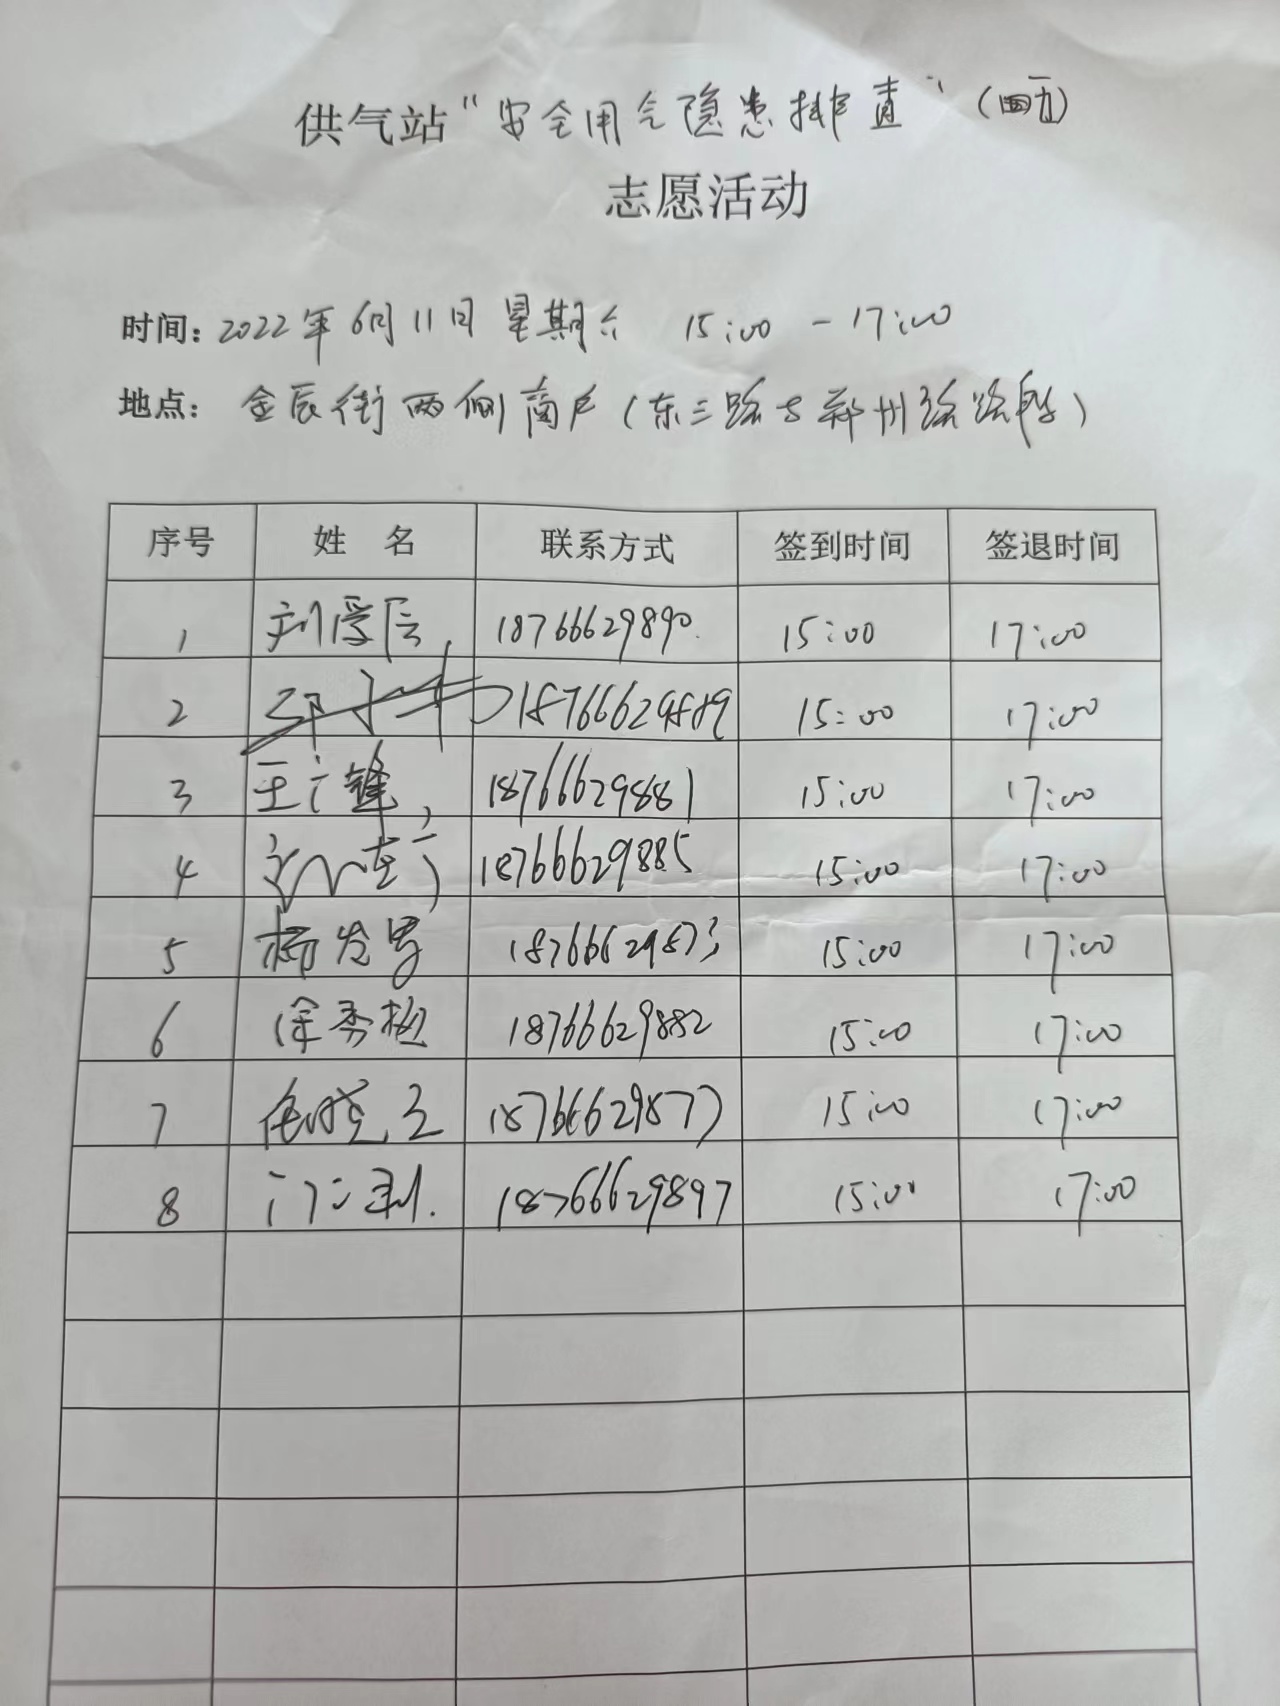 供气站“安全用气隐患排查”（五）
志愿活动
时间：2022年6月11日 星期六 15:00 - 17:00
地点：金辰街两侧商户（东三路与郑州路路段）
序号 姓名 联系方式 签到时间 签退时间
1 18766629890 15:00 17:00
2 18766629889 15:00 17:00
3 王广锋 18766629881 15:00 17:00
4 18766629885 15:00 17:00
5 杨发男 18766629873 15:00 17:00
6 徐秀梅 18766629882 15:00 17:00
7 18766629877 15:00 17:00
8 18766629897 15:00 17:00